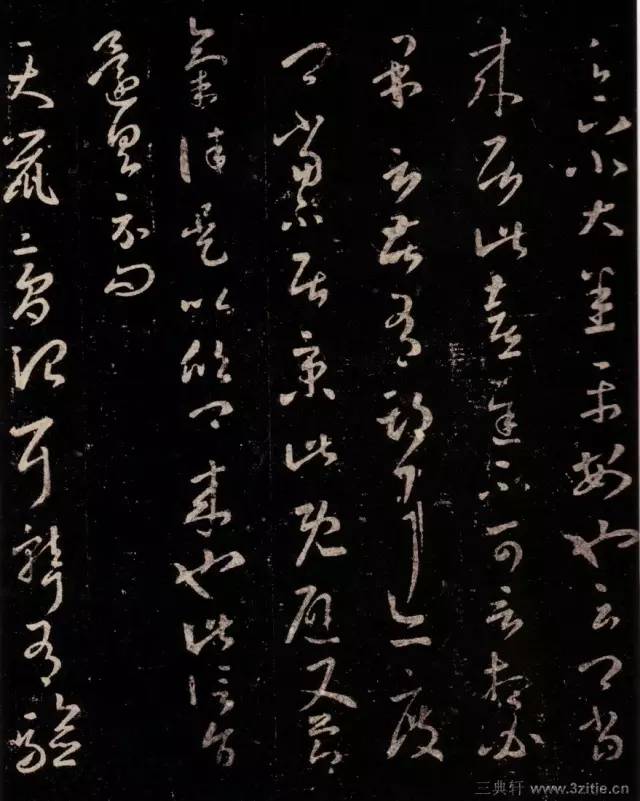 足下小大悉平安也云卿當
來居此喜遲不可言想必
果言苦有期耳亦度
卿當不居京此既避又節
氣佳是以欣卿來也此信旨
還具示問
天鼠膏治耳聾有驗
三典轩 www.3zitie.cn